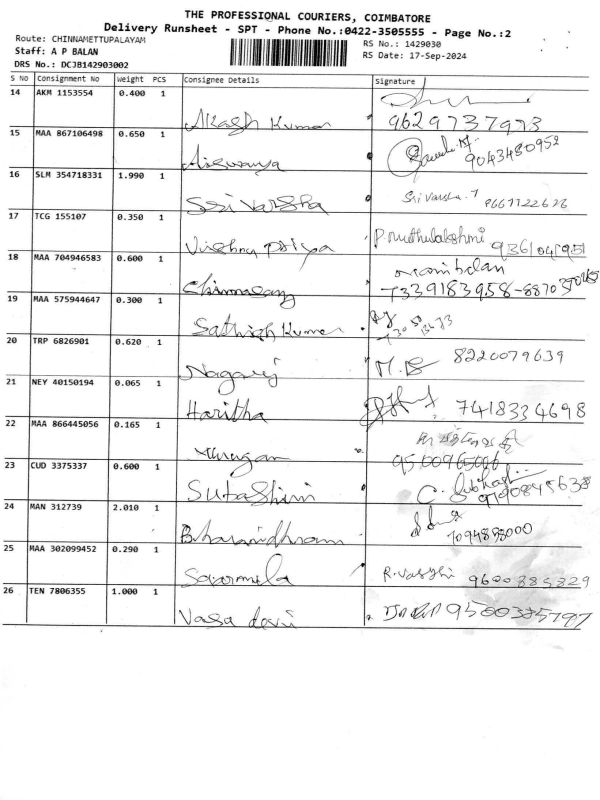 THE PROFESSIONAL COURIERS, COIMBATORE
Delivery Runsheet - SPT - Phone No.:0422-3505555 - Page No.:2
Route: CHINNAMETTUPALAYAM
RS No.: 1429030
Staff: A P BALAN
RS Date: 17-Sep-2024
DRS No.: DCJB142903002
S No Consignment No Weight PCS Consignee Details Signature
14 AKM 1153554 0.400 1 Akash Kumar 9629737973
15 MAA 867106498 0.650 1 Aiswarya 9043480952
16 SLM 354718331 1.990 1 Sri Varsha Sri Varsha
17 TCG 155107 0.350 1 Vishnu Priya Pmuthulakshmi
18 MAA 704946583 0.600 1 Chinnasamy 7339183958-
19 MAA 575944647 0.300 1 Sathish Kumar
20 TRP 6826901 0.620 1 Nagaraj 8220079639
21 NEY 40150194 0.065 1 Haritha 7418334698
22 MAA 866445056 0.165 1 Murugan
23 CUD 3375337 0.600 1 Subashini C. Subhashini
24 MAN 312739 2.010 1
25 MAA 302099452 0.290 1 9600885829
26 TEN 7806355 1.000 1 Vasa devi 9500385797